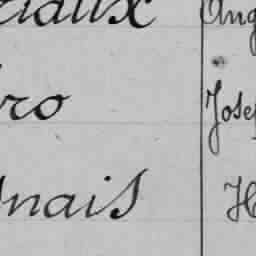 riaux Ang
ro Josep
nais H